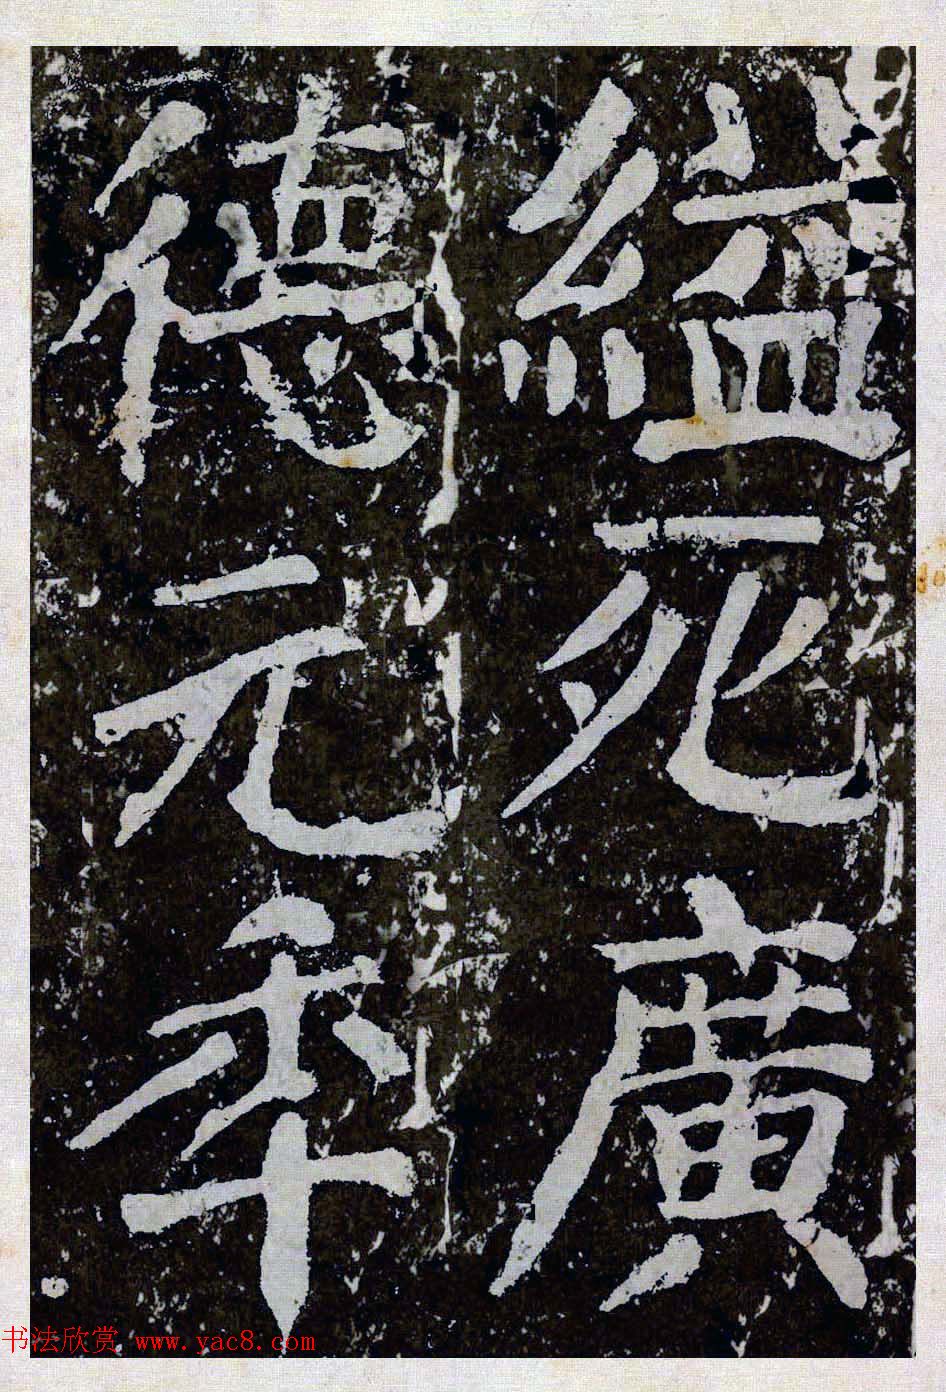 縊死廣
德元年
书法欣赏 www.yac8.com